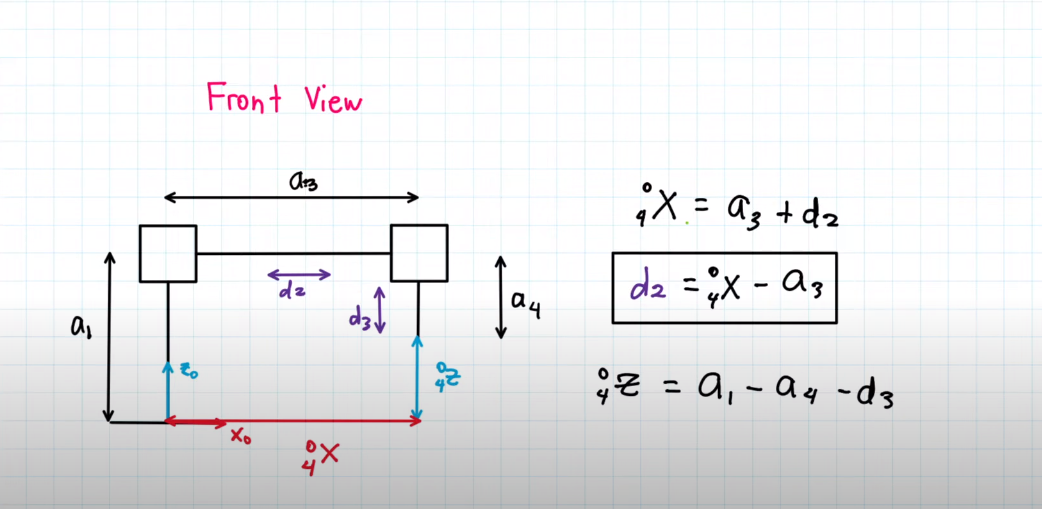 Front View
a3
d2
d3
a1
a4
z0
x0
⁰₄Z
⁰₄X
⁰₄X = a3 + d2
d2 = ⁰₄X - a3
⁰₄Z = a1 - a4 - d3